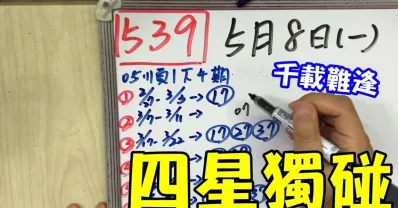 1539
5月8日(一)
05順1下4期
千載難逢
① 2/27-3/3→ ⑰
07
② 3/7-3/11→
③ 3/17-3/22→ ⑰ ㉗ ㊲
四星獨碰